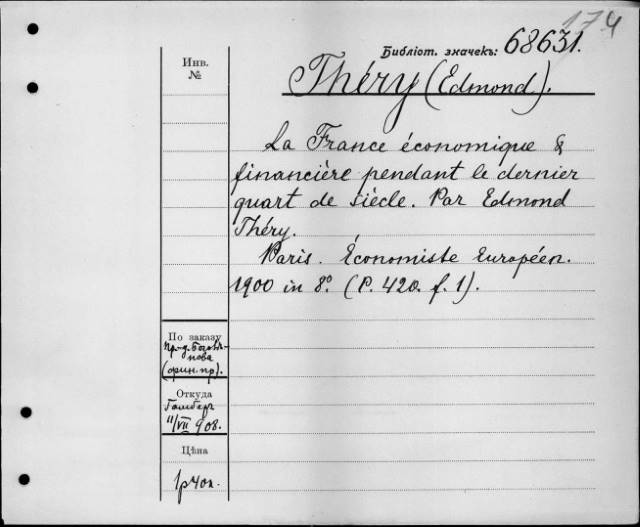 174
Библіот. значекъ: 68631.
Инв.
№
Théry (Edmond).
La France économique &
financière pendant le dernier
quart de siècle. Par Edmond
Théry.
Paris. Économiste Européen.
1900 in 8º (P. 420. f. 1).
По заказу
пр.-д.
нова
(фин. пр).
Откуда
11/VII 908.
Цѣна
1р40к.